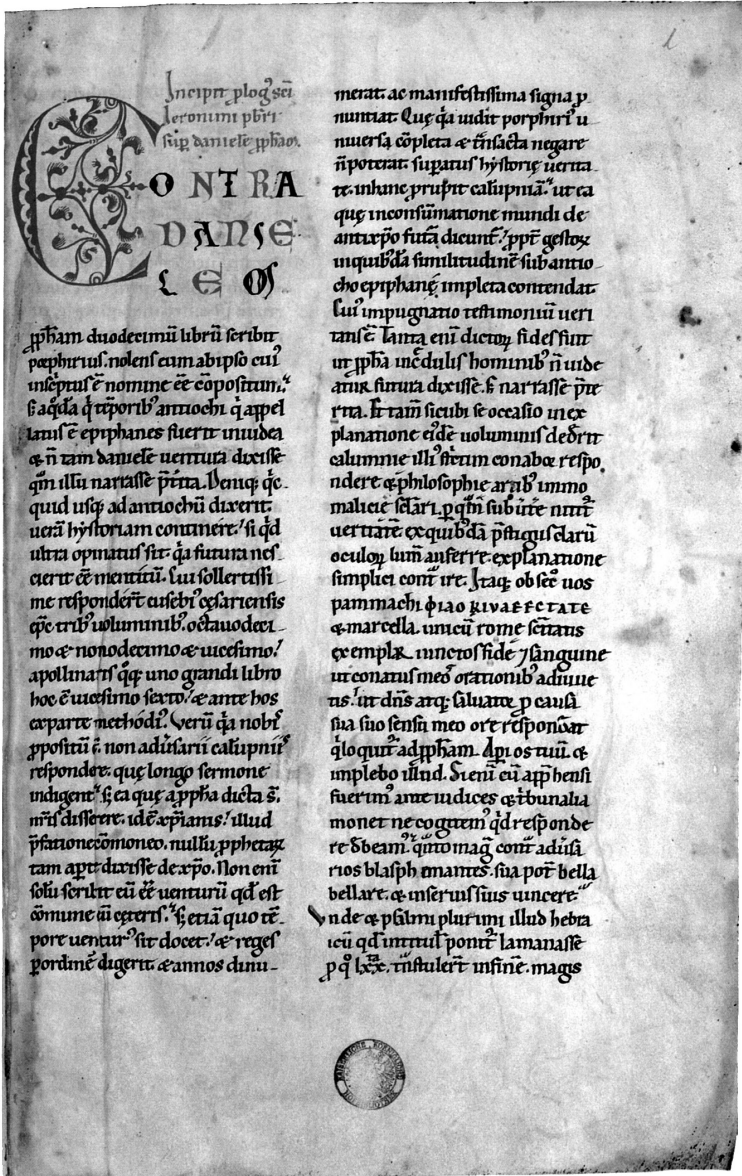 Incipit plog᷒ sc̄i
Ieronimi pb̄ri
sup̱ daniele᷒ ꝓphā.
CONTRA
DANIE
LEM
ꝓph̄am duodecimū librū scribit
porphirius. nolens eum ab ipso cui᷒
inscͥptus ē nomine ēe cōpositum.
s; a qͦdā qͥ tēporib᷒ antiochi qͥ appel
latus ē epiphanes fuerit in iudea
& n̄ tam daniele ventura dixisse
qͣm illū narrasse p̄tͥta. Deniq; qͥc
quid usq; ad antiochū dixerit.
uerā hystoriam continere. si qͥd
ultra opinatus sit. qͣa futura nes
cierit ēe mentitū. Cui sollertissi
me responder̄t eusebi᷒ cęsariensis
ep̄c trib᷒ uoluminib᷒. octauodeci
mo & nonodecimo & uicesimo.
apollinaris qͦq; uno grandi libro
hoc ē uicesimo sexto. & ante hos
ex parte methódi᷒. Verū qͣa nobͥs
ꝓpositū ē. non aduͥsarii calūpniͥs
respondere. quę longo sermone
indigent. s; ea quę a ꝓph̄a dicta s̄.
nr̄is disserere. id ē xp̄ianis. illud
p̄fatione cōmoneo. nullū ꝓphetaꝝ
tam ap̱te dixisse de xp̄o. Non enī
solū scribit eū ēe venturū qd̄ est
cōmune cū cęteris. s; etiā quo tē
pore ventur᷒ sit docet. & reges
p̱ ordinē digerit & annos dinu-
merat. ac manifestissima signa p̄
nuntiat. Quę qͣa uidit porphiri᷒ u
niuersa cōpleta & tn̄sacta negare
n̄ poterat. sup̱atus hystorię uerita
te. in hanc ꝓrupit calūpniā. ut ea
quę in consūmatione mundi de
antixp̄o futura dicunt᷑. ꝓpt̄ gestoꝝ
in quib᷒dā similitudinē sub antio
cho epiphanę impleta contendat.
Cui᷒ impugnatio testimoniū ueri
tatis ē. Tanta enī dictoꝝ fides fuit
ut ꝓph̄a incͤdulis hominib᷒ n̄ uide
atur futura dixisse. s; narrasse p̄te
rita. Et tam̄ sicubi se occasio in ex
planatione eiͤdē uoluminis dedͤrit
calumnie illi᷒ strͥctim conabor respo
ndere. & philosophie artib᷒ immo
malicie sclāri. p̱ qͣm sub ūtͤe nitit᷑
ueritatē. & quib᷒dā p̄stigiis clarū
oculoꝝ lum̄ auferre. explanatione
simplici contͣ ire. Itaq; obsecͦ uos
pammachi ΦΙΛΟΚΙVΑΕCΤΑΤΕ
& marcella. unicū rome sc̄itatis
exemplar. iunctos fide ⁊ sanguine
ut conatus meos orationib᷒ adiuue
tis. ut dn̄s atq; saluator ꝓ causa
sua suo sensu meo ore respondeat
qͥ loquit᷑ ad ꝓph̄am. Ap̱i os tuū. &
implebo illud. Si enī cū app̄hensi
fuerim᷒ ante iudices & tͥbunalia
monet ne cogitem᷒ qͥd responde
re dͤbeam᷒. qͣnto mag̓ contͣ aduͤsa
rios blasphemantes. sua pot̄ bella
bellare. & in seruis suis uincere.
Vnde & psalmi plurimi illud hebra
icū qd̄ in titulͦ ponit᷑ lamanasse
ꝓ qͦ lxx. tn̄stuler̄t in finē. magis